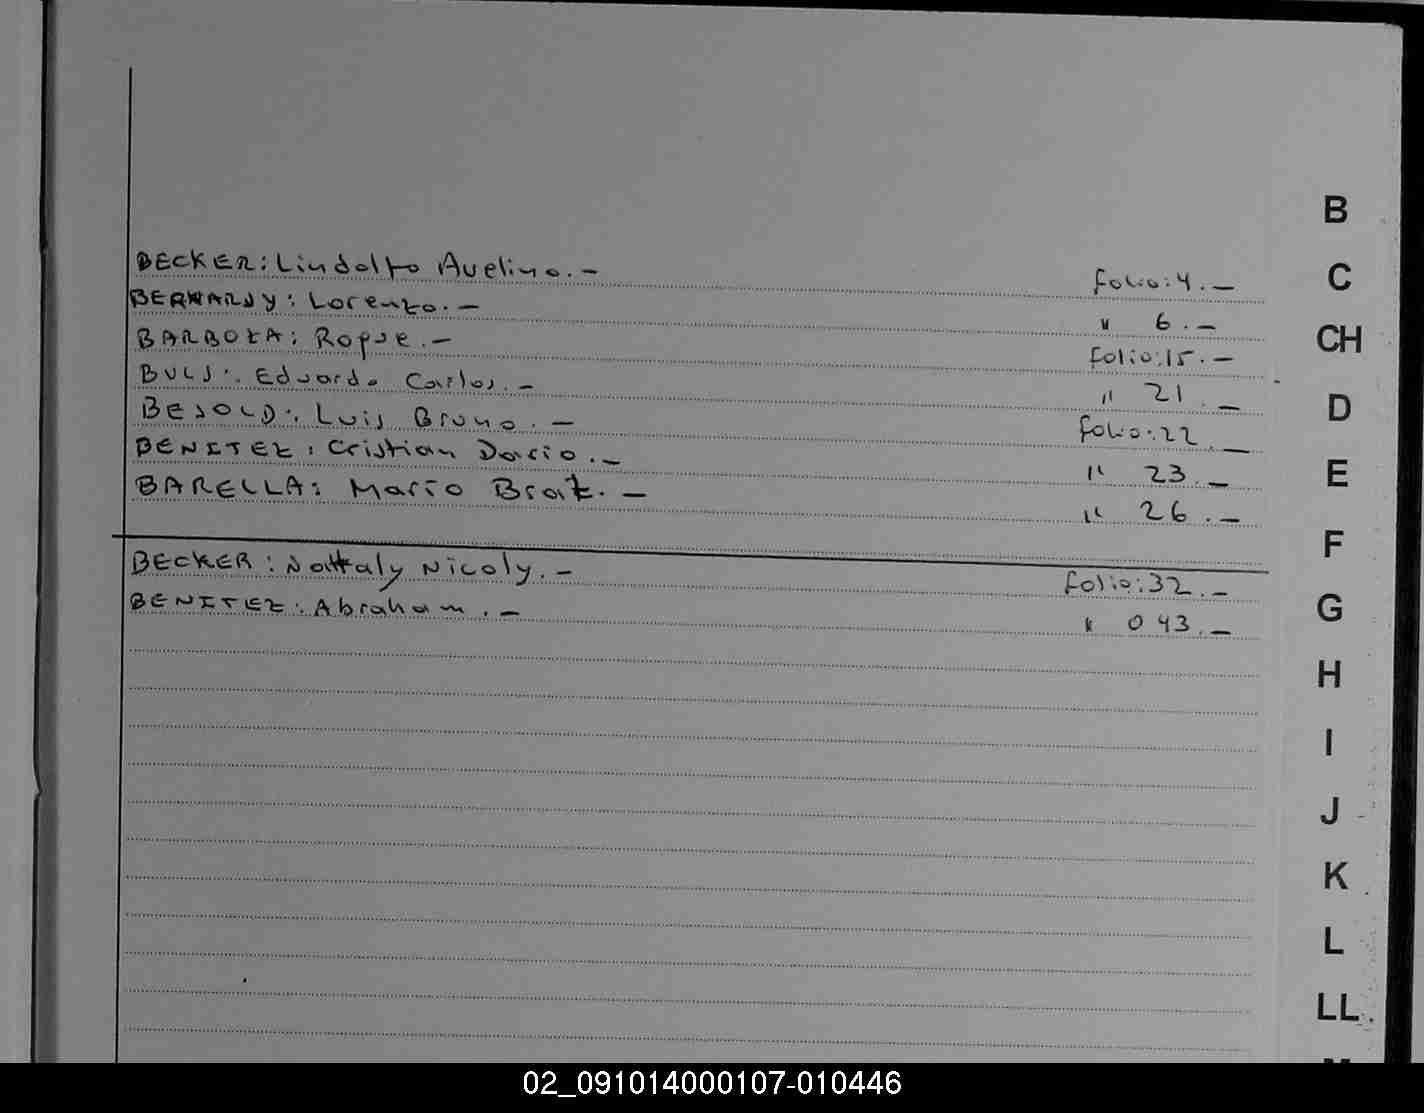 BECKER: Lindolfo Avelino.- folio: 4.-
BERNARDY: Lorenzo.- " 6.-
BARBOZA: Roque.- folio: 15.-
BULS: Eduardo Carlos.- " 21.-
BESOLD: Luis Bruno.- folio: 22.-
BENITEZ: Cristian Dario.- " 23.-
BARELLA: Mario Brat.- " 26.-
BECKER: Nathaly Nicoly.- folio: 32.-
BENITEZ: Abraham.- " 043.-
B
C
CH
D
E
F
G
H
I
J
K
L
LL
02_091014000107-010446